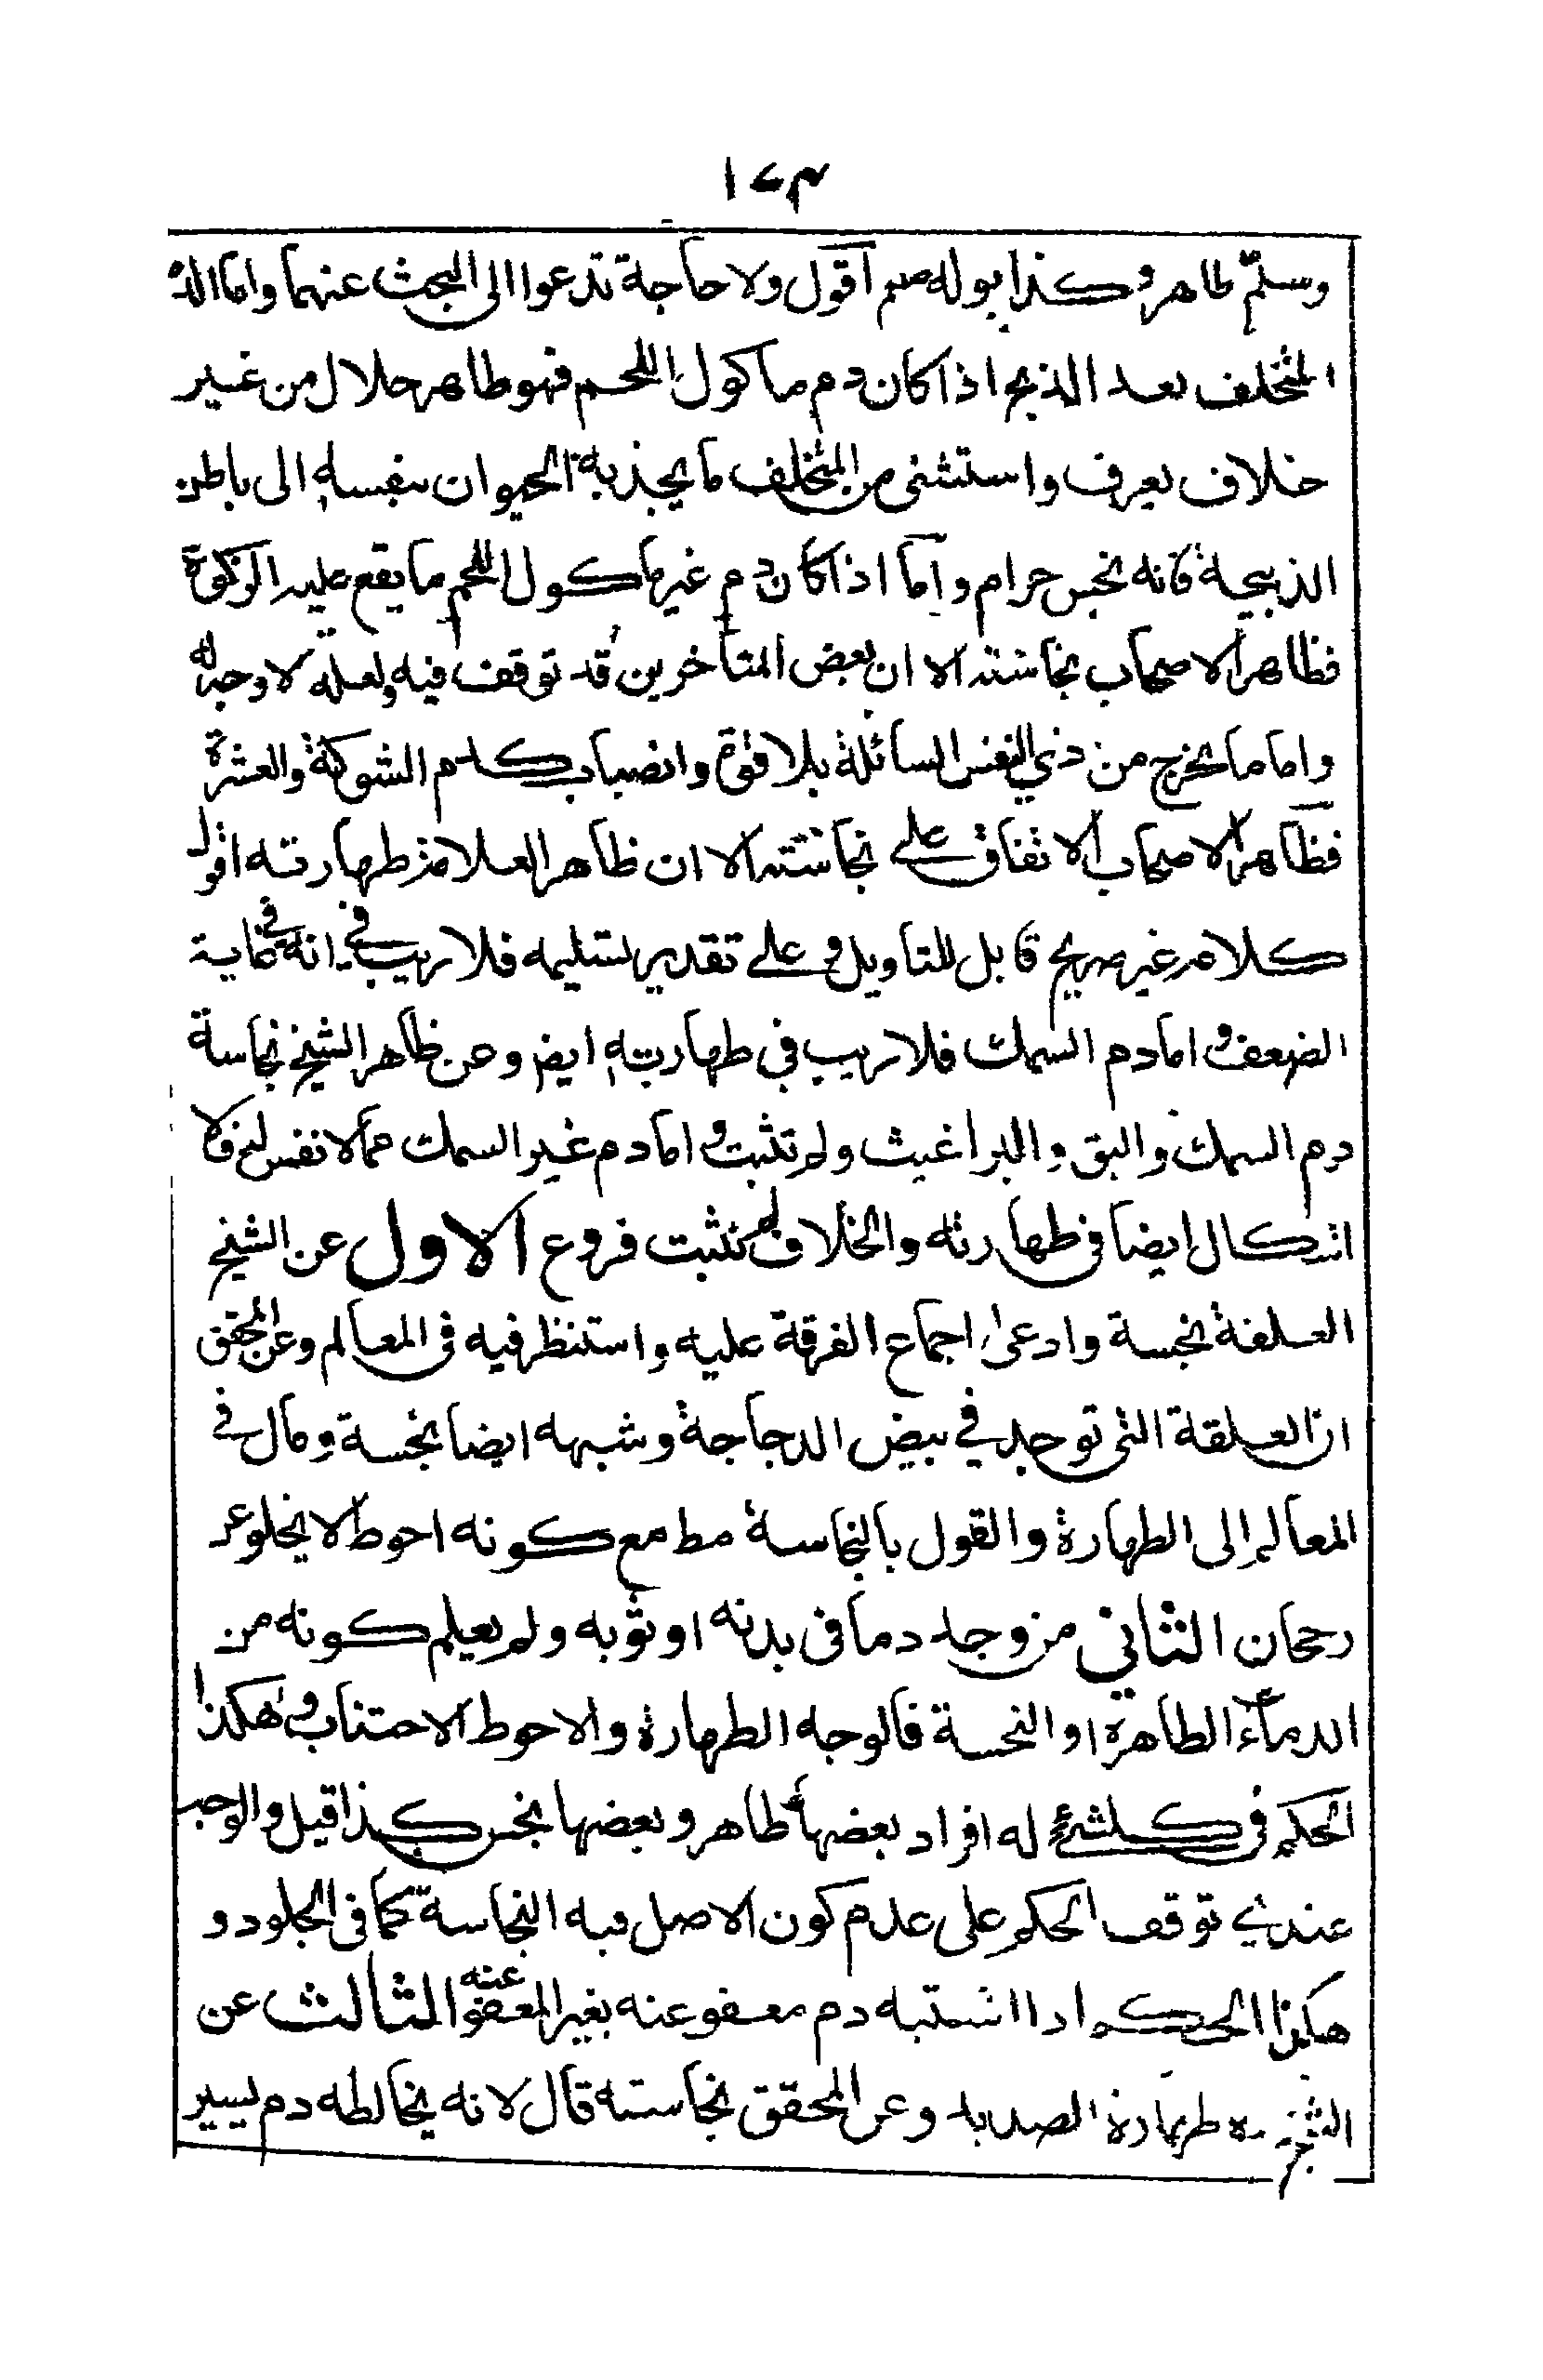 ١٧٣
وسلّم طاهر وكذا بوله صم اقول ولا حاجة تدعوا الى البحث عنهما واما الدم
المتخلف بعد الذبح اذا كان دم ماكول اللحم فهو طاهر حلال من غير
خلاف يعرف واستثنى من المتخلف ما يجذبه الحيوان بنفسه الى باطن
الذبيحة فانه نجس حرام واما اذا كان دم غير ماكول اللحم مما يقع عليه الزكوة
فظاهر الاصحاب نجاسته الا ان بعض المتاخرين قد توقف فيه ولعله لا وجه له
واما ما يخرج من ذي النفس السائلة بلا قوة وانصباب كدم الشوكة والعثرة
فظاهر الاصحاب الاتفاق على نجاسته الا ان ظاهر العلامة طهارته اقول
كلامه غير صريح قابل للتاويل وعلى تقدير تسليمه فلا ريب في انه في غاية
الضعف واما دم السمك فلا ريب في طهارته ايضا وعن ظاهر الشيخ نجاسة
دم السمك والبق والبراغيث ولم تثبت واما دم غير السمك مما لا نفس له فلا
اشكال ايضا في طهارته والخلاف لم يثبت فروع الاول عن الشيخ
العلقة نجسة وادعى اجماع الفرقة عليه واستنظر فيه في المعالم وعن المحقق
ان العلقة التى توجد في بيض الدجاجة وشبهه ايضا نجسة ومال في
المعالم الى الطهارة والقول بالنجاسة مط مع كونه احوط لا يخلو عن
رجحان الثاني من وجد دما فى بدنه او ثوبه ولم يعلم كونه من
الدماء الطاهرة او النجسة فالوجه الطهارة والاحوط الاجتناب وهكذا
الحكم في كلشئ له افراد بعضها طاهر وبعضها نجس كذا قيل والوجه
عندي توقف الحكم على عدم كون الاصل فيه النجاسة كما فى الجلود و
هكذا الحكم اذا اشتبه دم معفو عنه بغير المعفو عنه الثالث عن
الشيخ ره طهارة الصديد وعن المحقق نجاسته قال لانه يخالطه دم يسير